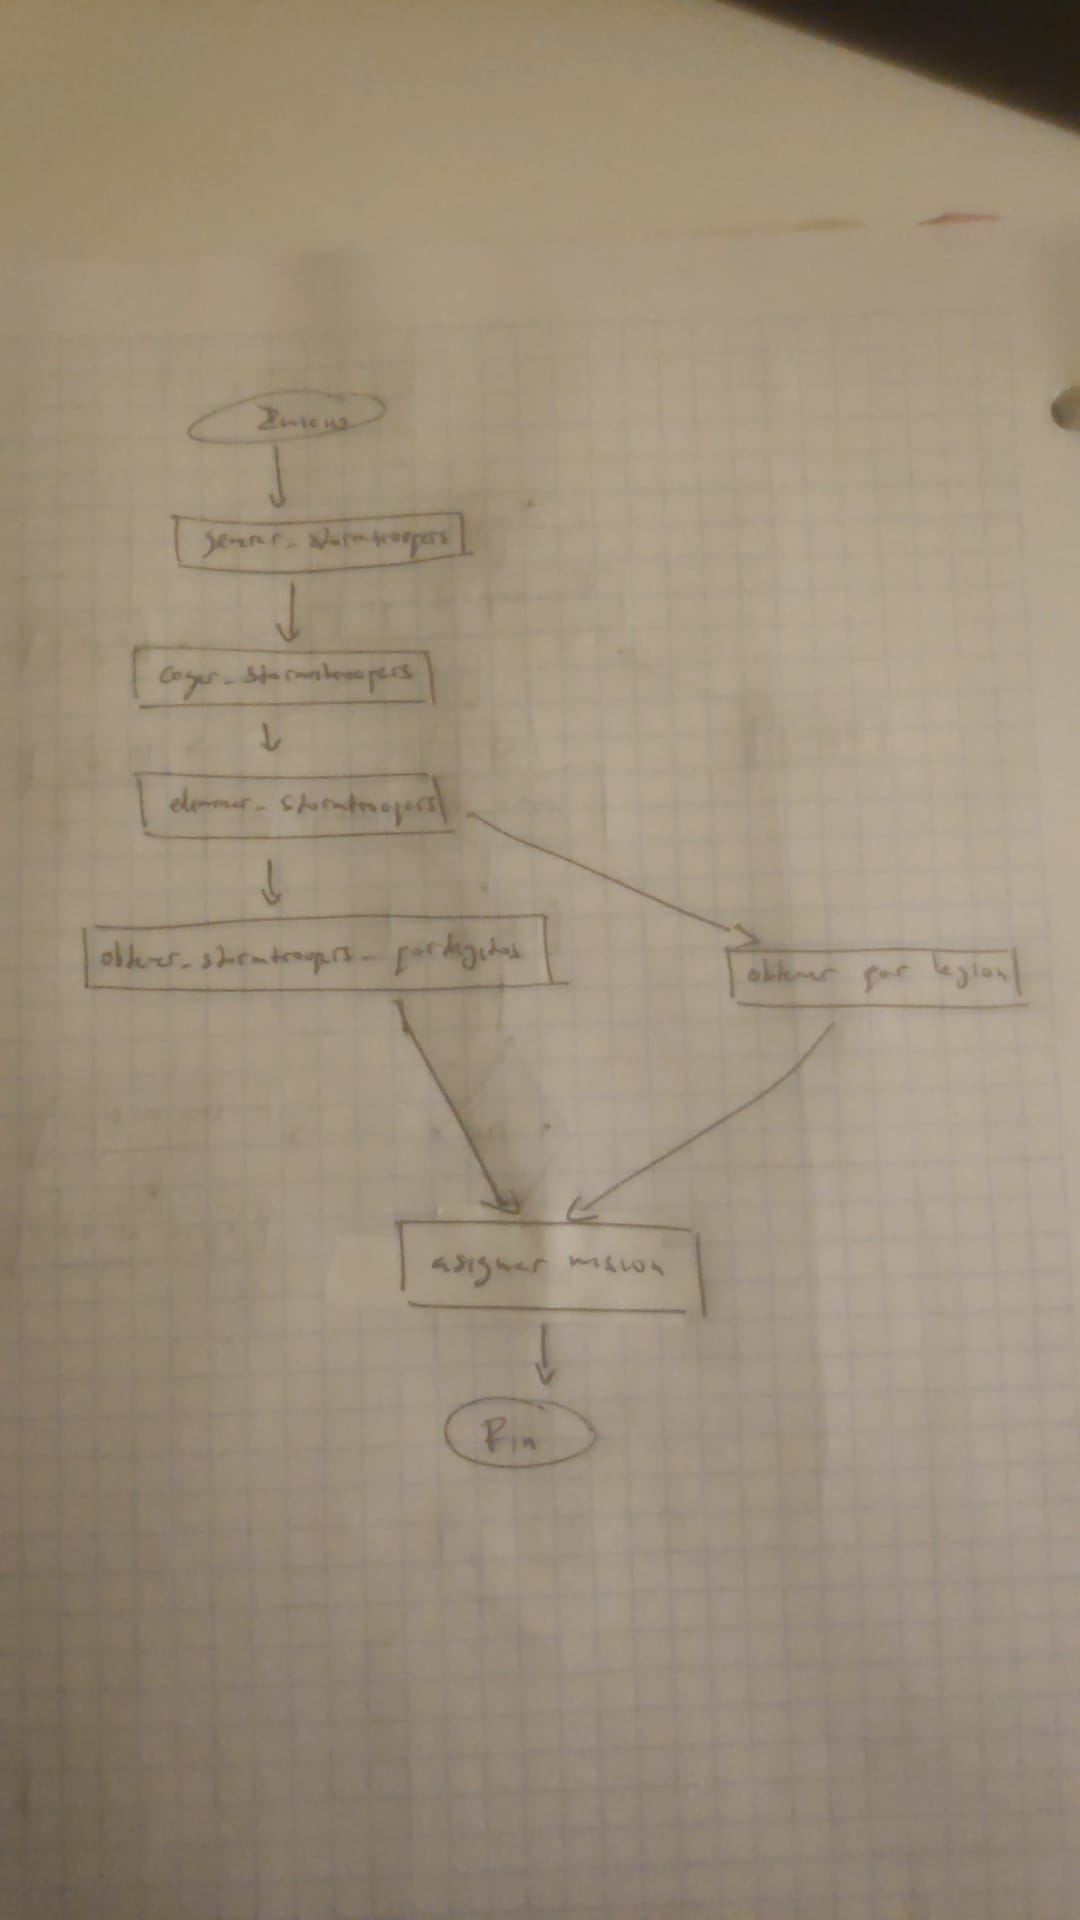 Inicio
generar_stormtroopers
coger_stormtroopers
eliminar_stormtroopers
obtener_stormtroopers_pordigitos
obtener por legion
asignar mision
Fin